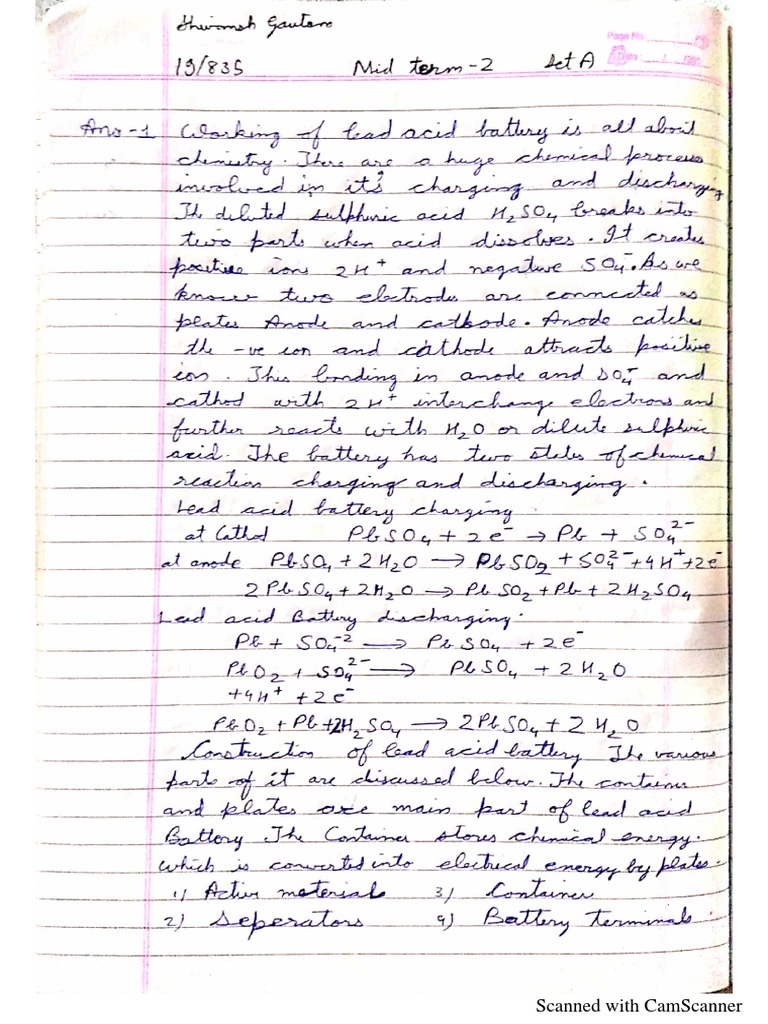 Shivansh Gautam
19/835 Mid term-2 Set A
Page No.
Ans-1 Working of lead acid battery is all about
chemistry. There are a huge chemical process
involved in it's charging and discharging
The diluted sulphuric acid H₂SO₄ breaks into
two parts when acid dissolves. It creates
positive ions 2H⁺ and negative SO₄⁻. As we
know two electrodes are connected as
plates Anode and cathode. Anode catches
the -ve ion and cathode attracts positive
ion. This bonding in anode and SO₄⁻ and
cathod with 2H⁺ interchange electrons and
further reacts with H₂O or dilute sulphuric
acid. The battery has two states of chemical
reaction charging and discharging.
Lead acid battery charging
at Cathod PbSO₄ + 2e⁻ → Pb + SO₄²⁻
at anode PbSO₄ + 2H₂O → PbSO₂ + SO₄²⁻ + 4H⁺ + 2e⁻
2PbSO₄ + 2H₂O → PbSO₂ + Pb + 2H₂SO₄
Lead acid Battery discharging.
Pb + SO₄⁻² → PbSO₄ + 2e⁻
PbO₂ + SO₄²⁻ → PbSO₄ + 2H₂O
+4H⁺ + 2e⁻
PbO₂ + Pb + 2H₂SO₄ → 2PbSO₄ + 2H₂O
Construction of lead acid battery The various
parts of it are discussed below. The container
and plates are main part of lead acid
Battory. The Container stores chemical energy.
which is converted into electrical energy by plates.
1) Active materials 3) Container
2) Seperators 4) Battery terminals.
Scanned with CamScanner